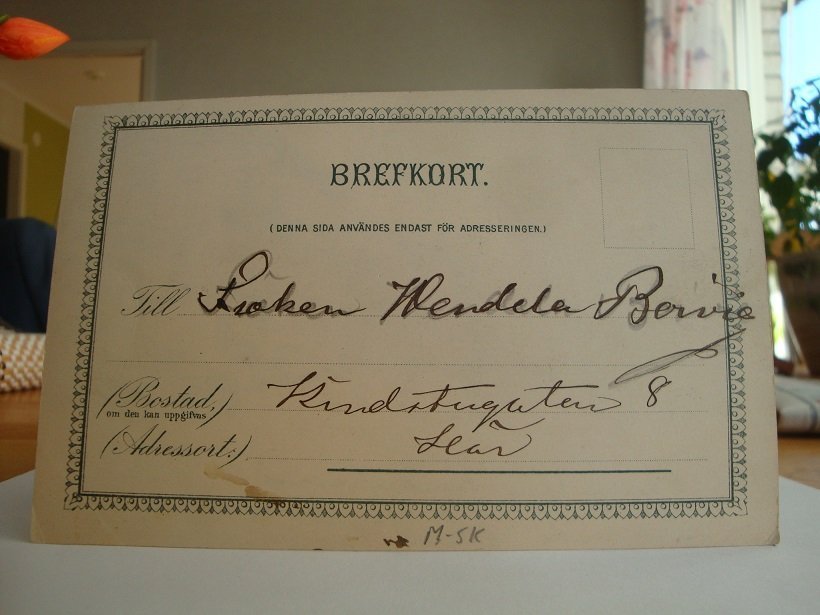 BREFKORT.
(DENNA SIDA ANVÄNDES ENDAST FÖR ADRESSERINGEN.)
Till Fröken Wendela
(Bostad,) Kindstugatan 8
om den kan uppgifvas
(Adressort:) Här
M-SK